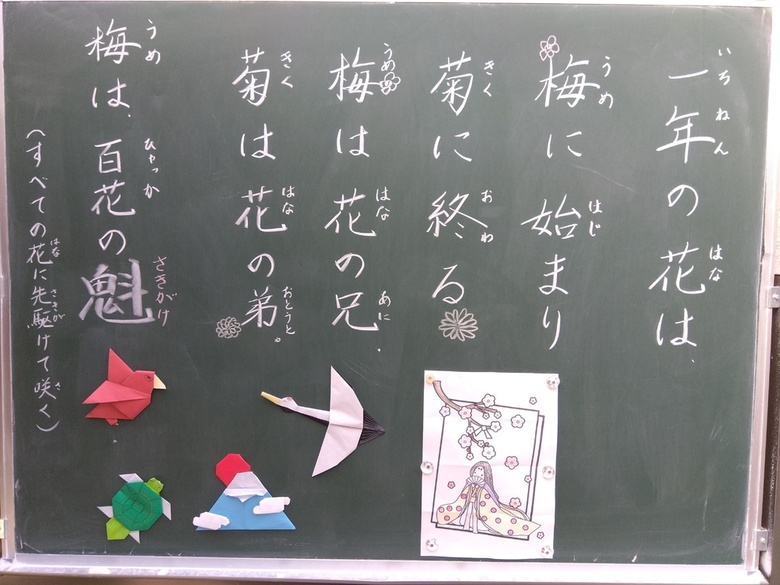 一年の花は、
梅に始まり
菊に終る
梅は花の兄、
菊は花の弟。
梅は、百花の魁
(すべての花に先駆けて咲く)
いちねん
はな
うめ
はじ
きく
おわ
うめ
はな
あに
きく
はな
おとうと
うめ
ひゃっか
さきがけ
はな
さきが
さ